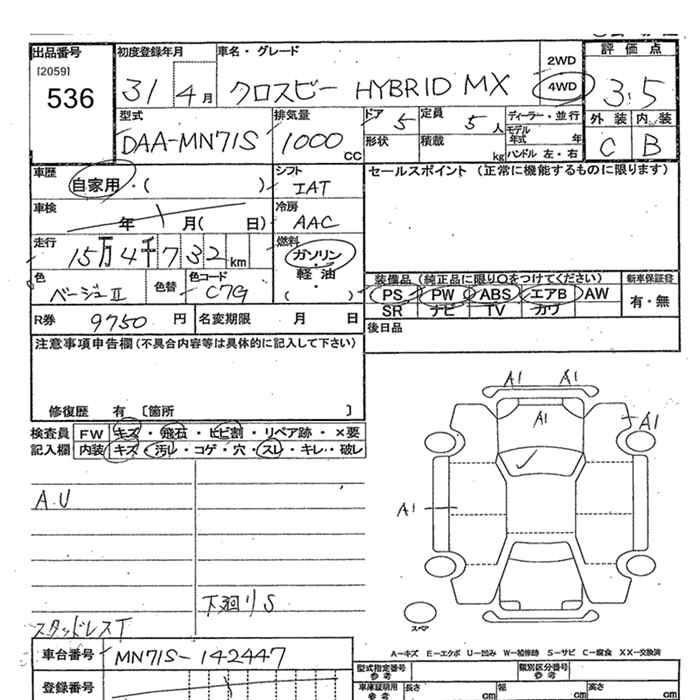 出品番号
[2059]
536
初度登録年月
31 4 月
車名・グレード
クロスビー HYBRID MX
2WD
4WD
評価点
3.5
外装 内装
C B
型式
DAA-MN71S
排気量
1000 cc
ドア 5
定員 5 人
形状
積載 kg
ディーラー・並行
モデル年式 年
ハンドル 左・右
車歴
自家用・( )
シフト
IAT
車検
年 月( 日)
冷房
AAC
走行
15万4千732 km
燃料
ガソリン・軽油
( )
色
ベージュⅡ
色替
色コード
C7G
セールスポイント (正常に機能するものに限ります)
装備品 (純正品に限り○をつけてください)
PS PW ABS エアB AW
SR ナビ TV カワ
新車保証書
有・無
R券 9750 円
名変期限 月 日
後日品
注意事項申告欄(不具合内容等は具体的に記入して下さい)
修復歴 有 〔箇所 〕
検査員記入欄
FW キズ・飛石・ヒビ割・リペア跡・×要
内装 キズ・汚レ・コゲ・穴・スレ・キレ・破レ
A.U
下廻りS
スタッドレスT
A1 A1
A1
A1
A1
スペア
A－キズ E－エクボ U－凹ミ W－補修跡 S－サビ C－腐食 XX－交換済
車台番号 MN71S-142447
登録番号
型式指定番号 参考
類別区分番号 参考
車庫証明用 参考
長さ cm
幅 cm
高さ cm